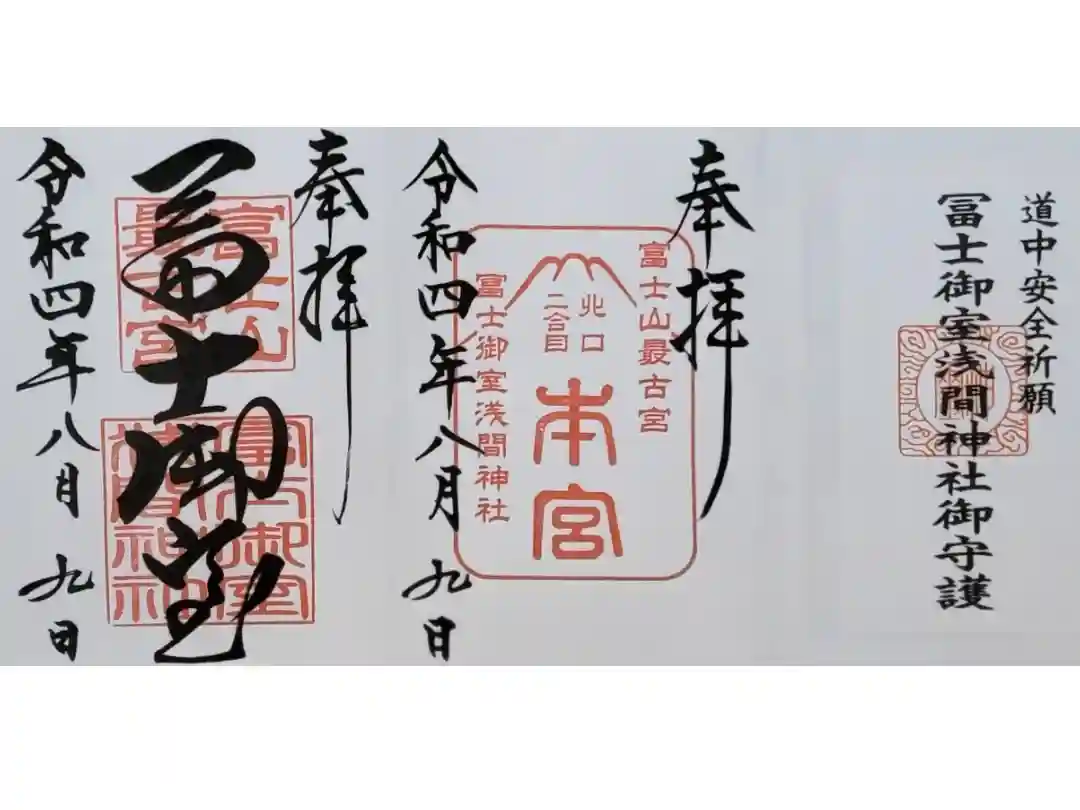 道中安全祈願
冨士御室浅間神社御守護
奉拝
富士山最古宮
北口
二合目
本宮
冨士御室浅間神社
令和四年八月九日
奉拝
富士山
最古宮
冨士御室
令和四年八月九日